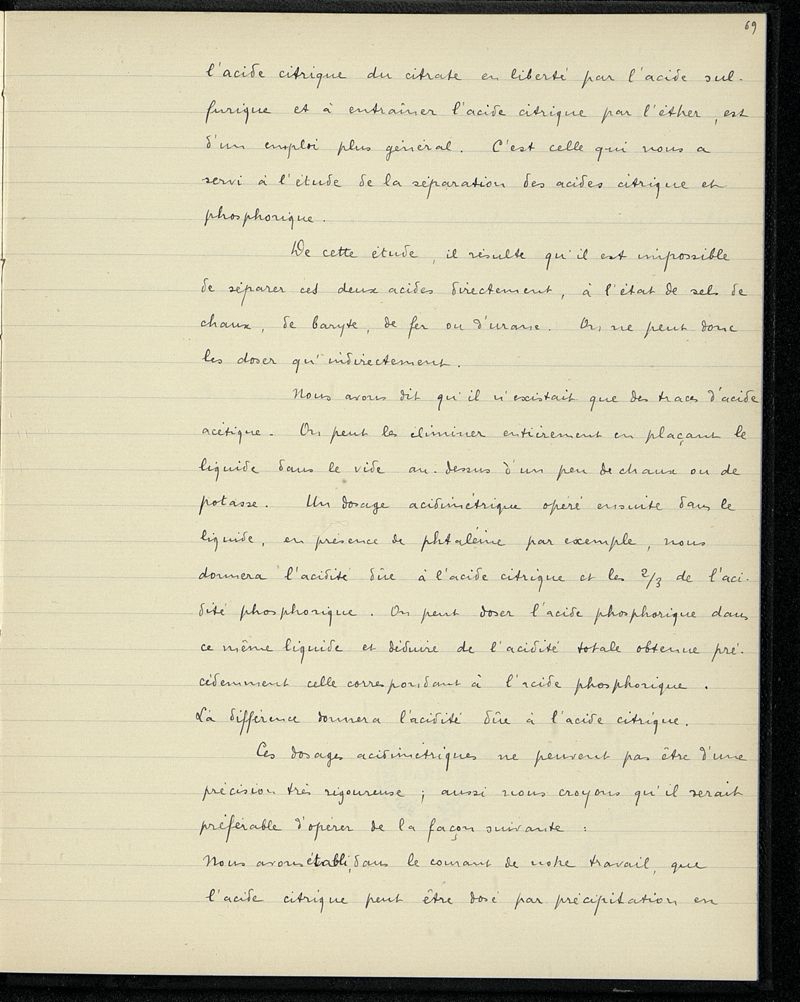 69
l'acide citrique du citrate en liberté par l'acide sul-
furique et à entraîner l'acide citrique par l'éther, est
d'un emploi plus général. C'est celle qui nous a
servi à l'étude de la séparation des acides citrique et
phosphorique.
De cette étude, il résulte qu'il est impossible
de séparer ces deux acides directement, à l'état de sels de
chaux, de baryte, de fer ou d'urane. On ne peut donc
les doser qu'indirectement.
Nous avons dit qu'il n'existait que des traces d'acide
acétique. On peut les éliminer entièrement en plaçant le
liquide dans le vide au-dessus d'un peu de chaux ou de
potasse. Un dosage acidimétrique opéré ensuite dans le
liquide, en présence de phtaléine par exemple, nous
donnera l'acidité dûe à l'acide citrique et les 2/3 de l'aci-
dité phosphorique. On peut doser l'acide phosphorique dans
ce même liquide et déduire de l'acidité totale obtenue pré-
cédemment celle correspondant à l'acide phosphorique.
La différence donnera l'acidité dûe à l'acide citrique.
Ces dosages acidimétriques ne peuvent pas être d'une
précision très rigoureuse ; aussi nous croyons qu'il serait
préférable d'opérer de la façon suivante :
Nous avons établi, dans le courant de notre travail, que
l'acide citrique peut être dosé par précipitation en